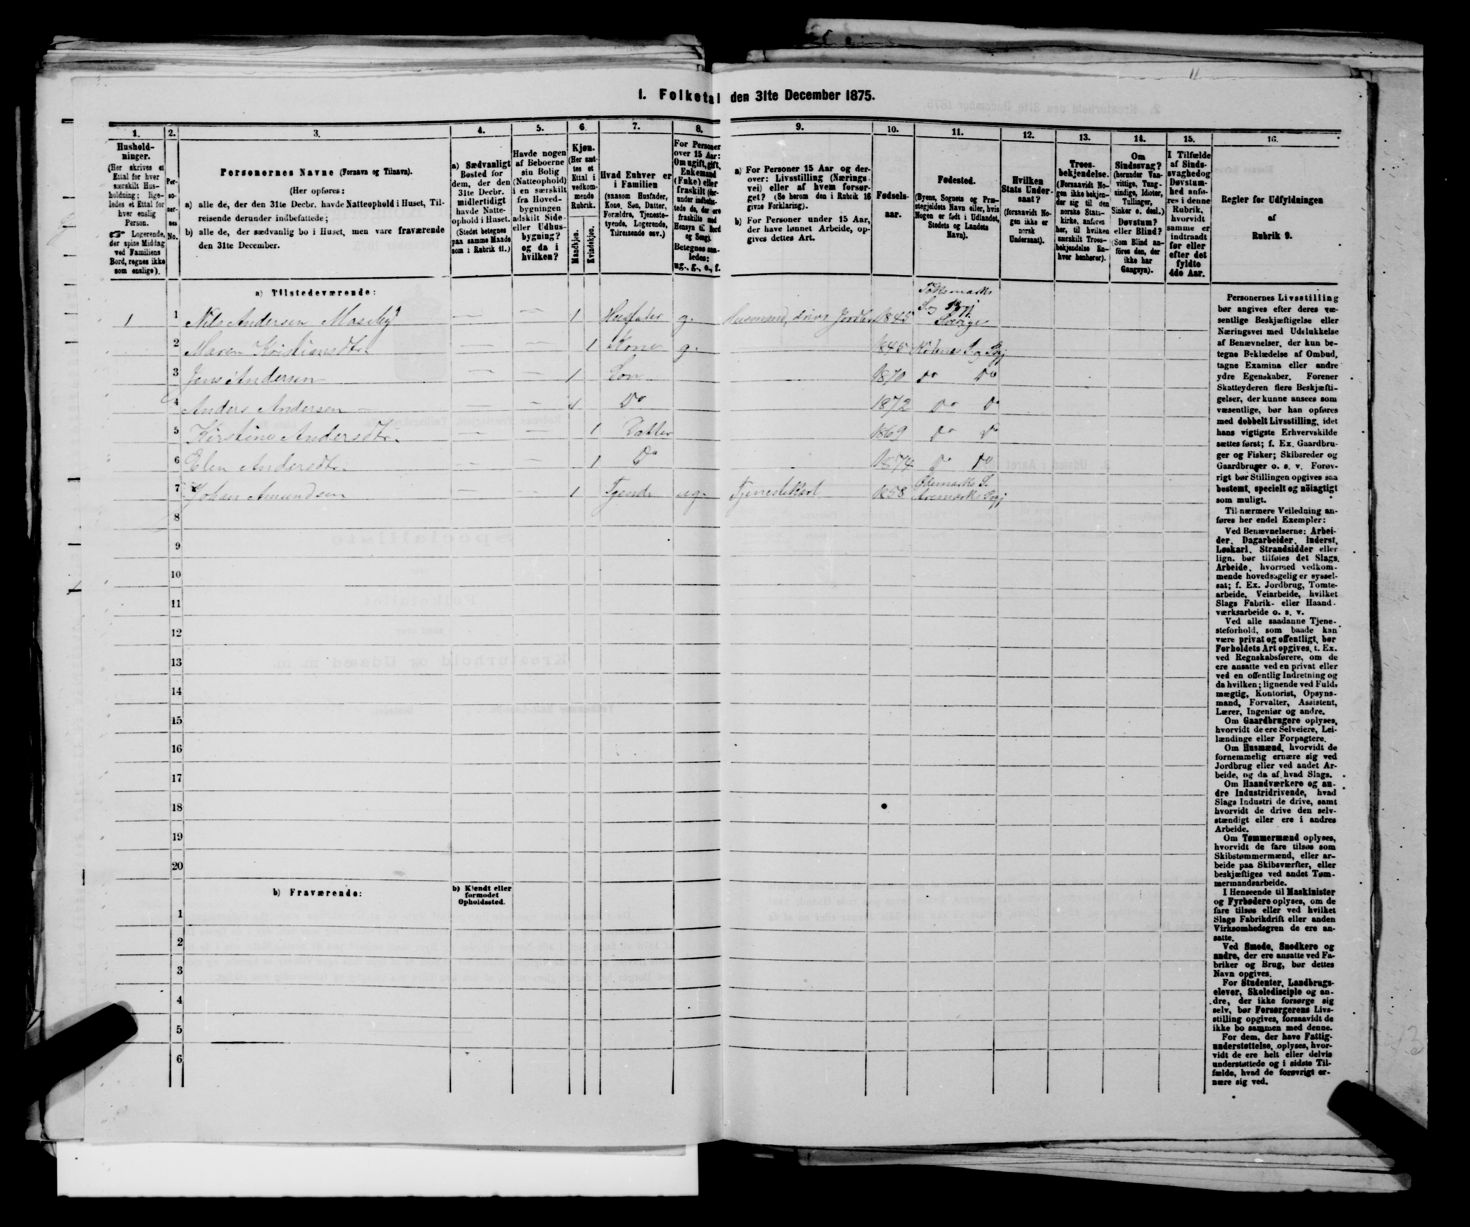 11
1. Folketal den 31te December 1875.
1.
Hushold-
ninger.
(Her skrives et
Ettal for hver
særskilt Hus-
holdning; lige-
ledes et Ettal for
hver enslig
Person.
☞ Logerende,
der spise Middag
ved Familiens
Bord, regnes ikke
som enslige).
2.
Per-
so-
ner-
nes
No.
3.
Personernes Navne (Fornavn og Tilnavn).
(Her opføres:
a) alle de, der den 31te Decbr. havde Natteophold i Huset, Til-
reisende derunder indbefattede;
b) alle de, der sædvanlig bo i Huset, men vare fraværende
den 31te December.
4.
a) Sædvanligt
Bosted for
dem, der den
31te Decbr.
midlertidigt
havde Natte-
ophold i Huset.
(Stedet betegnes
paa samme Maade
som i Rubrik 11.)
5.
Havde nogen
af Beboerne
sin Bolig
(Natteophold)
i en særskilt
fra Hoved-
bygningen
adskilt Side-
eller Udhus-
bygning?
og da i
hvilken?
6.
Kjøn.
(Her sæt-
tes et
Ettal i
vedkom-
mende
Rubrik.
Mandkjøn.
Kvindekjøn.
7.
Hvad Enhver er
i Familien
(saasom Husfader,
Kone, Søn, Datter,
Forældre, Tjeneste-
tyende, Logerende,
Tilreisende osv.)
8.
For Personer
over 15 Aar:
Om ugift, gift,
Enkemand
(Enke) eller
fraskilt
Betegnes saa-
ledes:
ug., g., e., f.
9.
a) For Personer 15 Aar og der-
over: Livsstilling (Nærings-
vei) eller af hvem forsør-
get? (Se herom den i Rubrik 16
givne Forklaring).
b) For Personer under 15 Aar,
der have lønnet Arbeide, op-
gives dettes Art.
10.
Fødsels-
aar.
11.
Fødested.
(Byens, Sognets og Præ-
stegjeldets Navn, eller, hvis
Nogen er født i Udlandet,
Stedets og Landets
Navn).
12.
Hvilken
Stats Under-
saat?
(forsaavidt No-
gen ikke er
norsk
Undersaat).
13.
Troes-
bekjendelse.
(Forsaavidt No-
gen ikke bekjen-
der sig til den
norske Stats-
kirke, anføres
her, til hvilken
særskilt Troes-
bekjendelse En-
hver henhører).
14.
Om
Sindssvag?
(herunder Van-
vittige, Tung-
sindige, Idioter,
Tullinger,
Sinker o. desl.)
Døvstum?
eller Blind?
(Som Blind an-
føres den, der
ikke har
Gangsyn).
15.
I Tilfælde
af Sinds-
svaghed og
Døvstum-
hed anfø-
res i denne
Rubrik,
hvorvidt
samme er
indtraadt
før eller
efter det
fyldte
4de Aar.
16.
Regler for Udfyldningen
af
Rubrik 9.
a) Tilstedeværende:
1 1 Nils Andersen Moseby — — 1 Husfader g. Husmand, driver Jordbr 1845 Sverige
2 Maren Kristiansdtr — — 1 Kone g. 1845
3 Jens Andersen — — 1 Søn 1870 do do
4 Anders Andersen — — 1 Do 1872 do do
5 Kirstine Andersdtr — — 1 Datter 1869 do do
6 Elen Andersdtr — — 1 Do 1874 do do
7 Johan Amundsen — — 1 Tyende ug. Tjenestekarl 1858 Aremark
8
9
10
11
12
13
14
15
16
17
18
19
20
b) Fraværende:
b) Kjendt eller
formodet
Opholdssted.
1
2
3
4
5
6
Personernes Livsstilling
bør angives efter deres væ-
sentlige Beskjæftigelse eller
Næringsvei med Udelukkelse
af Benævnelser, der kun be-
tegne Beklædelse af Ombud,
tagne Examina eller andre
ydre Egenskaber. Forener
Skatteyderen flere Beskjæfti-
gelser, der kunne ansees som
væsentlige, bør han opføres
med dobbelt Livsstilling, idet
hans vigtigste Erhvervskilde
sættes først; f. Ex. Gaardbru-
ger og Fisker; Skibsreder og
Gaardbruger o. s. v. Forøv-
rigt bør Stillingen opgives saa
bestemt, specielt og nøiagtigt
som muligt.
Til nærmere Veiledning an-
føres her endel Exempler:
Ved Benævnelserne: Arbei-
der, Dagarbeider, Inderst,
Løskarl, Strandsidder eller
lign. bør tilføies det Slags
Arbeide, hvormed vedkom-
mende hovedsagelig er syssel-
sat; f. Ex. Jordbrug, Tomte-
arbeide, Veiarbeide, hvilket
Slags Fabrik- eller Haand-
værksarbeide o. s. v.
Ved alle saadanne Tjene-
steforhold, som baade kan
være privat og offentligt, bør
Forholdets Art opgives, t. Ex.
ved Regnskabsførere, om de
ere ansatte ved en privat eller
ved en offentlig Indretning og
da hvilken; lignende ved Fuld-
mægtig, Kontorist, Opsyns-
mand, Forvalter, Assistent,
Lærer, Ingeniør og andre.
Om Gaardbrugere oplyses,
hvorvidt de ere Selveiere, Lei-
lændinge eller Forpagtere.
Om Husmænd, hvorvidt de
fornemmelig ernære sig ved
Jordbrug eller ved andet Ar-
beide, og da af hvad Slags.
Om Haandværkere og an-
dre Industridrivende, hvad
Slags Industri de drive, samt
hvorvidt de drive den selv-
stændigt eller ere i andres
Arbeide.
Om Tømmermænd oplyses,
hvorvidt de fare tilsøs som
Skibstømmermænd, eller ar-
beide paa Skibsværfter, eller
beskjæftiges ved andet Tøm-
mermandsarbeide.
I Henseende til Maskinister
og Fyrbødere oplyses, om de
fare tilsøs eller ved hvilket
Slags Fabrikdrift eller anden
Virksomhedsgren de ere an-
satte.
Ved Smede, Snedkere og
andre, der ere ansatte ved Fa-
briker og Brug, bør dettes
Navn opgives.
For Studenter, Landbrugs-
elever, Skoledisciple og an-
dre, der ikke forsørge sig
selv, bør Forsørgerens Livs-
stilling opgives, forsaavidt de
ikke bo sammen med denne.
For dem, der have Fattig-
understøttelse, oplyses, hvor-
vidt de ere helt eller delvis
understøttede og i sidste Til-
fælde, hvad de forøvrigt er-
nære sig ved.